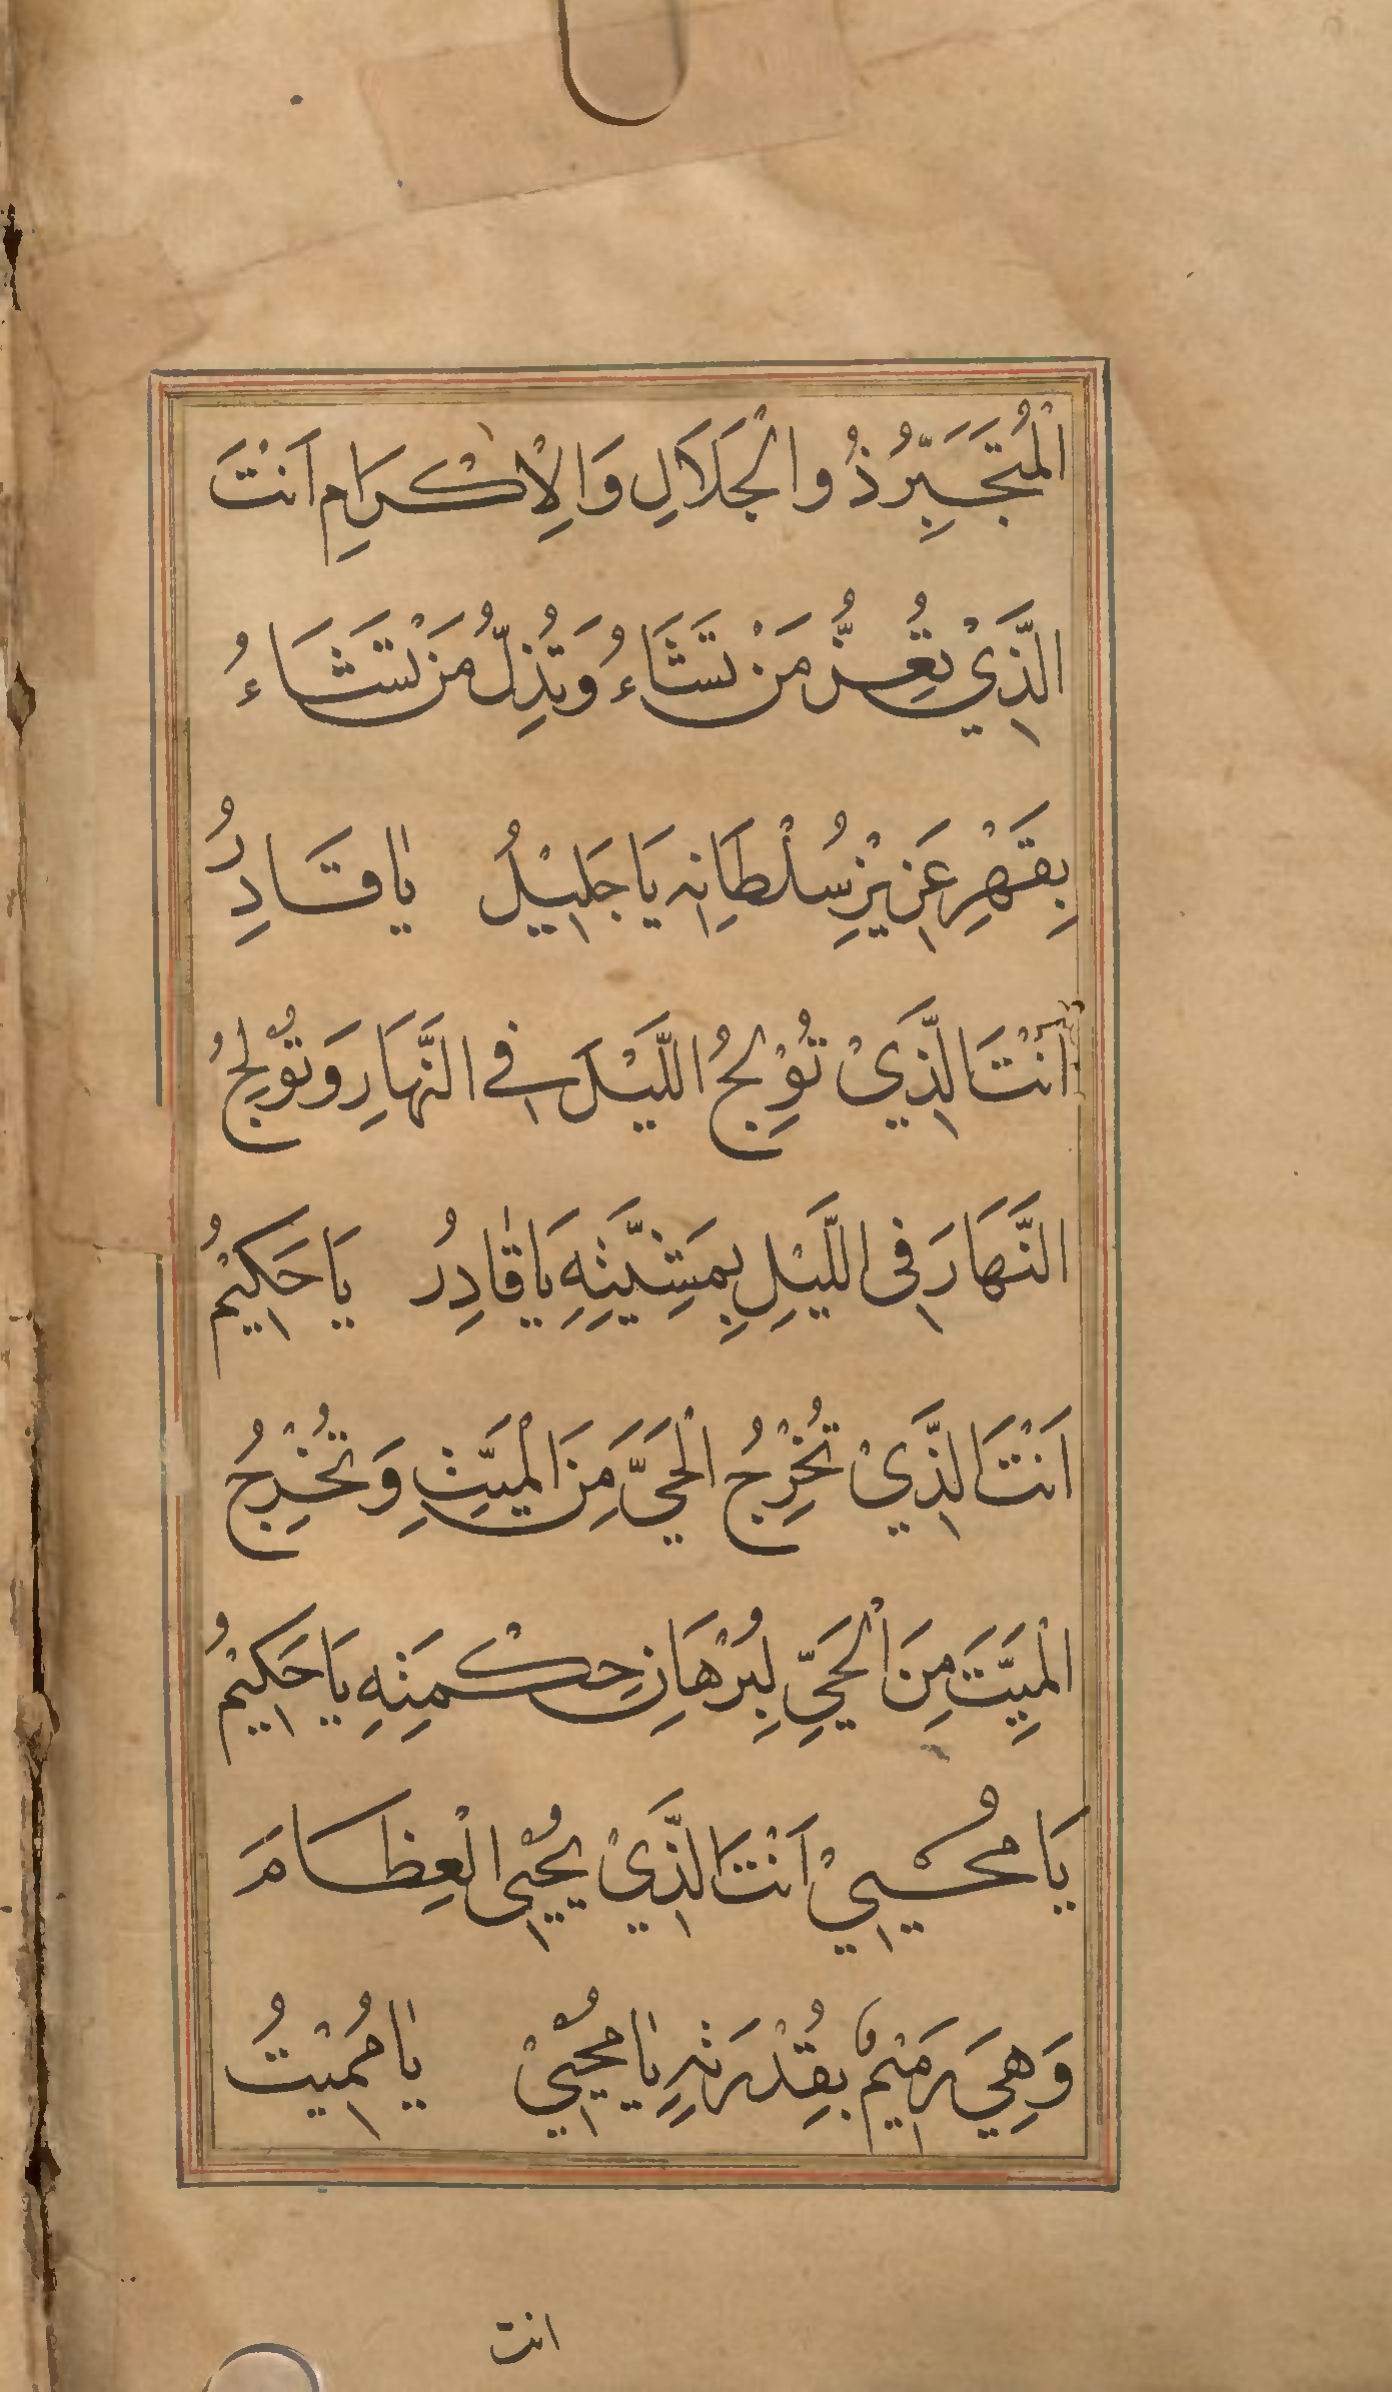 الْمُتَجَبِّرُ ذُو الْجَلَالِ وَالْاِكْرَامِ اَنْتَ
الَّذِيْ تُعِزُّ مَنْ تَشَاءُ وَتُذِلُّ مَنْ تَشَاءُ
بِقَهْرِ عَزِيْزِ سُلْطَانِهِ يَا جَلِيْلُ يَا قَادِرُ
اَنْتَ الَّذِيْ تُوْلِجُ اللَّيْلَ فِي النَّهَارِ وَتُوْلِجُ
النَّهَارَ فِى اللَّيْلِ بِمَشِيَّتِهِ يَا قَادِرُ يَا حَكِيْمُ
اَنْتَ الَّذِيْ تُخْرِجُ الْحَيَّ مِنَ الْمَيِّتِ وَتُخْرِجُ
الْمَيِّتَ مِنَ الْحَيِّ لِبُرْهَانِ حِكْمَتِهِ يَا حَكِيْمُ
يَا مُحْيِيْ اَنْتَ الَّذِيْ يُحْيِي الْعِظَامَ
وَهِيَ رَمِيْمٌ بِقُدْرَتِهِ يَا مُحْيِيْ يَا مُمِيْتُ
انت